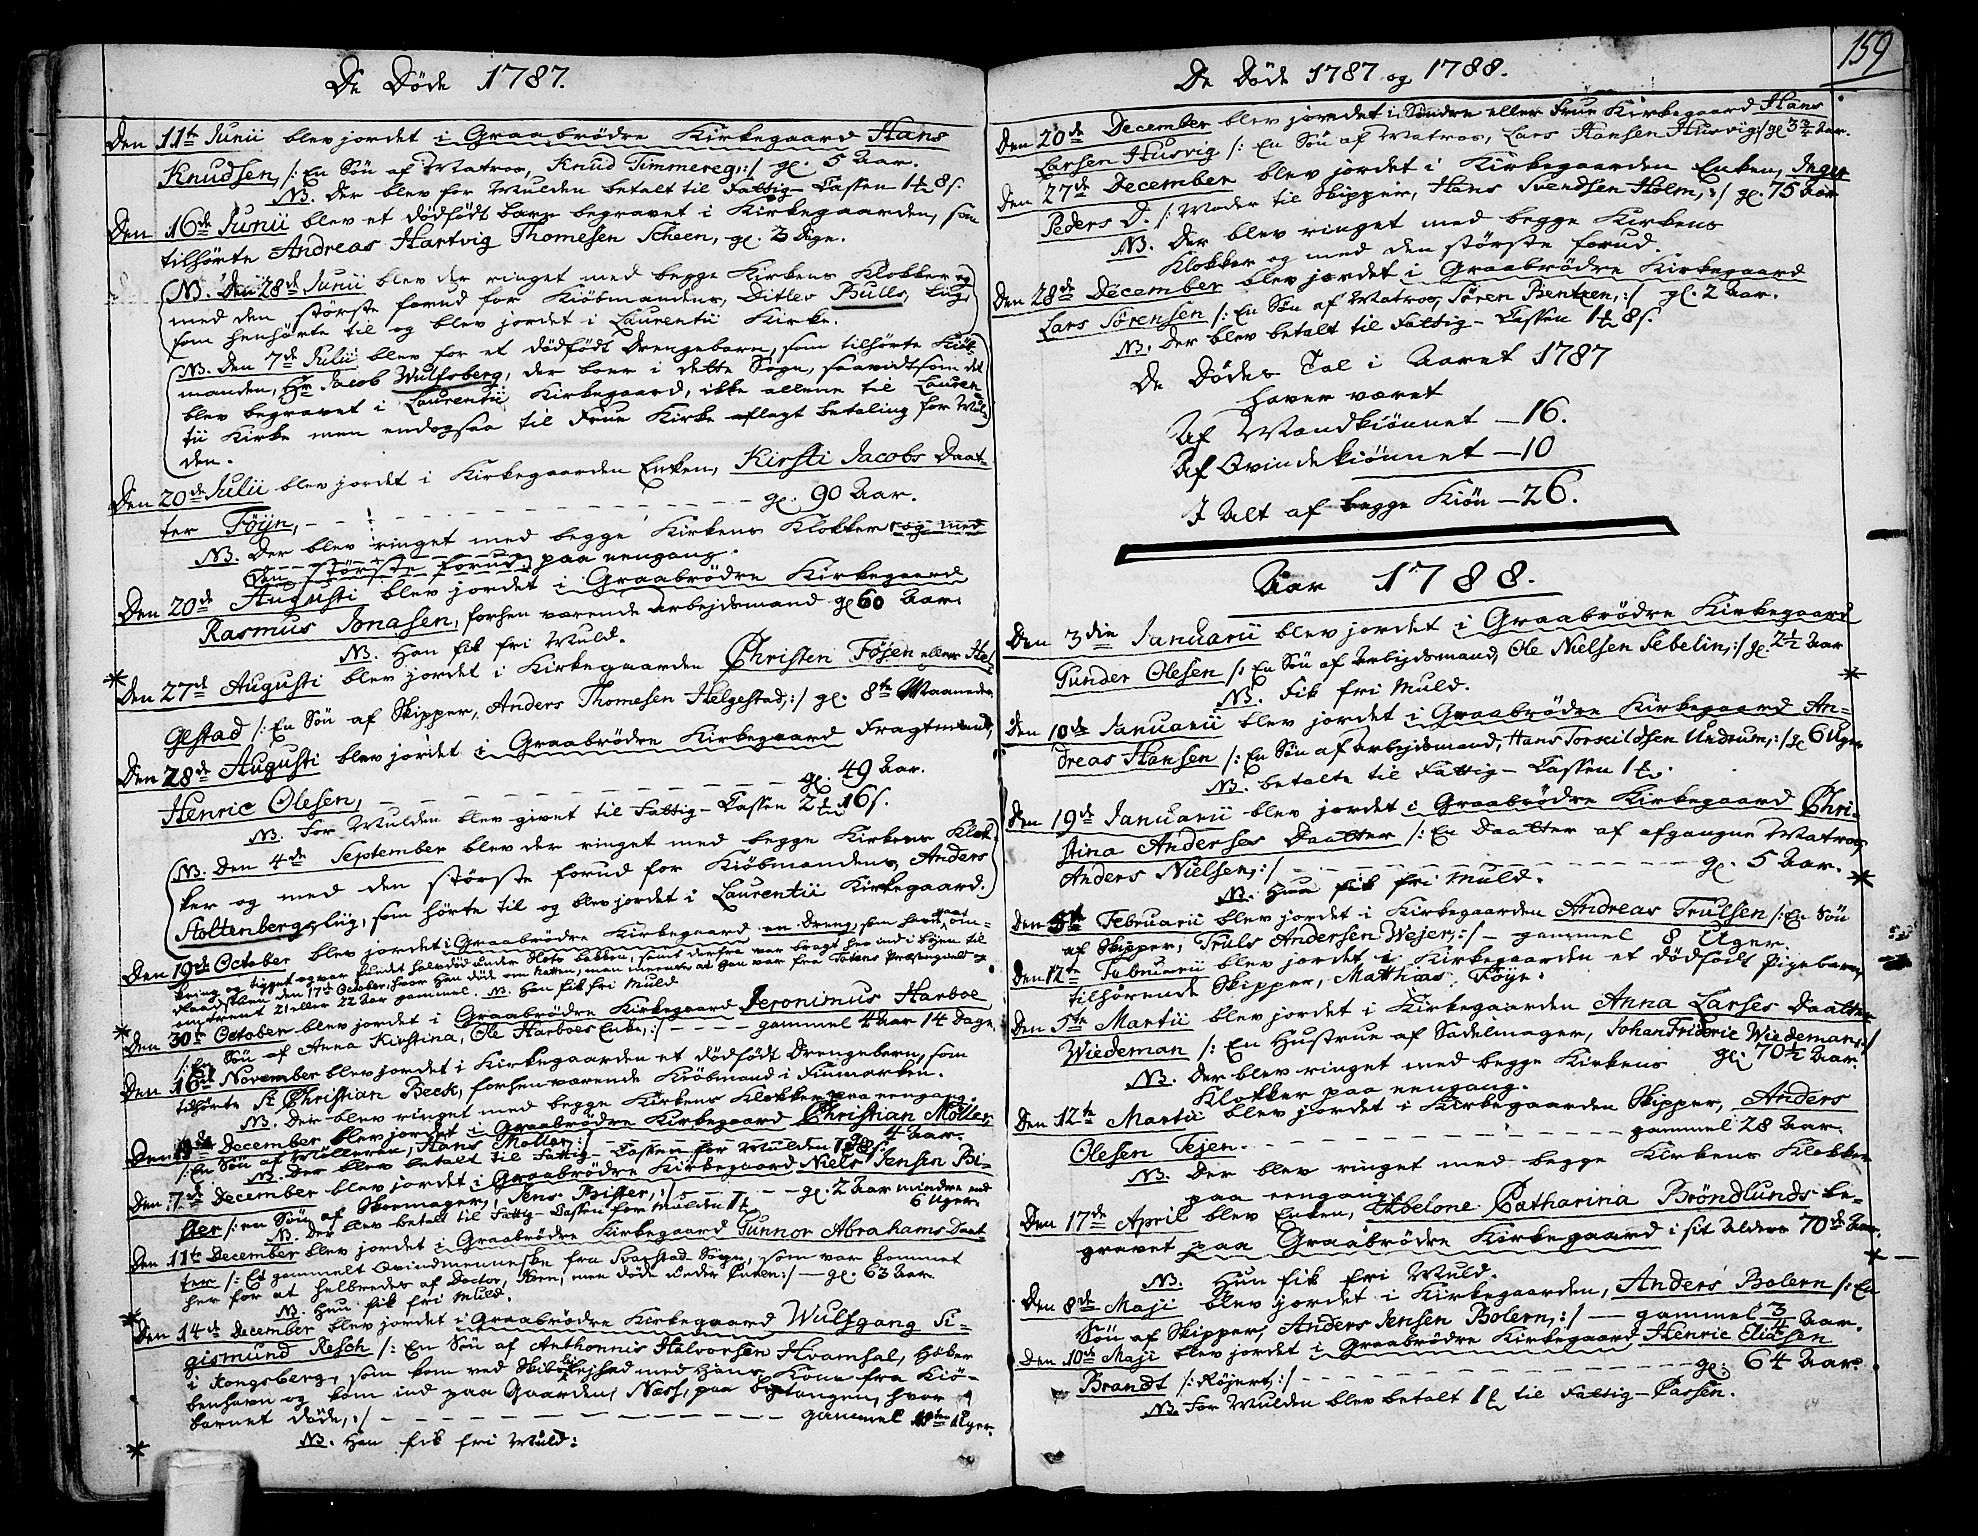 De Døde 1787.
Den 11te Junii blev jordet i Graabrødre Kirkegaard Hans
Knudsen, /: En Søn af Matros, Knud Timmereg,:/ gl. 5 Aar.
NB. Der blev for Mulden betalt til Fattig-Cassen 8 s.
Den 16de Junii blev et dødfødt barn begravet i Kirkegaarden, som
tilhørte Andreas Hartvig Thomesen Scheen, gl. 3 Dge.
NB. Den 28de Junii blev der ringet med begge Kirkens Klokker og
med den største forud for Kiøbmandens, Ditlev Bulls, Liig,
som henhørte til og blev jordet i Laurentii Kirke.
NB. Den 7de Julii blev for et dødfødt Drengebarn, som tilhørte Kiøb-
manden, Hr Jacob Wulfsberg, der boer i dette Sogn, saavidt som det
blev begravet i Laurentii Kirkegaard, ikke allene til Lauren
tii Kirke men endogsaa til Frue Kirke aflagt betaling for Mul
den.
Den 20de Julii blev jordet i Kirkegaarden Enken, Kirsti Jacobs Daat-
ter Föyn, - - - gl. 90 Aar.
NB. Der blev ringet med begge Kirkens Klokker og med
den største forud paa eengang.
Den 20de Augusti blev jordet i Graabrødre Kirkegaard
Rasmus Jonasen, forhen værende Arbejdsmand gl 60 Aar.
NB. Han fik fri Muld.
Den 27de Augusti blev jordet i Kirkegaarden Christen Föjen eller Hel-
gestad /: En Søn af Skipper, Anders Thomesen Helgestad,:/ gl. 8te Maaneder
Den 28de Augusti blev jordet i Graabrødre Kirkegaard Fragtmand,
Henric Olesen, - - - gl. 49 Aar.
NB. For Mulden blev givet til Fattig-Cassen 16 s.
NB. Den 4de September blev der ringet med begge Kirkens Klok-
ker og med den største forud for Kiøbmandens, Anders
Stoltenbergs, Liig, som hørte til og blev jordet i Laurentii Kirkegaard.
Den 19de October blev jordet i Graabrødre Kirkegaard en Dreng, som havde gaaet om-
kring og tigget og var fundet halvdød under Slots bakken, samt derfra var bragt her ind i byen til
Raadstuen den 17de October, hvor Han døde om Natten, man meente at Han var fra Totens Præstegield og
omtrent 21 eller 22 Aar gammel. NB. Han fik fri Muld
Den 30te October blev jordet i Graabrødre Kirkegaard Jeronimus Harboe
/: En Søn af Anna Kirstina, Ole Harboes Enke,:/ - - - gammel 4 Aar 14 Dage.
Den 16de November blev jordet i Kirkegaarden et dødfødt Drengebarn, som
tilhørte Sr Christian Beck, forhenværende Kiøbmand i Finmarken.
NB. Der blev ringet med begge Kirkens Klokker paa eengang.
Den December blev jordet i Graabrødre Kirkegaard Christian Möller,
/: En Søn af Mølleren, Hans Møller,:/ - - - gl. 4 Aar.
NB. Der blev betalt til Fattig-Cassen for Mulden
Den 7de December blev jordet i Graabrødre Kirkegaard Niels Jensen Bi-
ster /: en Søn af Skoemager, Jens Bister,:/ - - - gl. 2 Aar mindre end
6 Uger.
NB. Der blev betalt til Fattig-Cassen for Mulden
Den 11te December blev jordet i Graabrødre Kirkegaard Gunnor Abrahams Daat
ter /: Et gammelt Qvindmenneske fra Svarstad Sogn, som var kommet
her for at helbredes af Doctor, Ibsen, men døde under Curen:/ - gl. 63 Aar.
NB. Hun fik fri Muld.
Den 14de December blev jordet i Graabrødre Kirkegaard Wulfgang Si-
gismund Resch /: En Søn af Anthonnis Halvorsen Hvamsal, Hober
i Kongsberg, som kom ved Skibs Lejlighed med Hans Kone fra Kiø-
benhavn og kom ind paa Gaarden, Næss, paa hvor
barnet døde,:/ - - - gammel Uger.
NB. Han fik fri Muld:
De Døde 1787 og 1788.
159
Den 20de December blev jordet i Søndre eller Frue Kirkegaard Hans
Larsen Husvig /: En Søn af Matros, Lars Hansen Husvig:/ gl 3 Aar.
Den 27de December blev jordet i Kirkegaarden Enken, Inger
Peders D. /: Moder til Skipper, Hans Svendsen Holm,:/ gl. 75 Aar
NB. Der blev ringet med begge Kirkens
Klokker og med den største forud.
Den 28de December blev jordet i Graabrødre Kirkegaard
Lars Sörensen /: En Søn af Matros, Sören Bentzen,:/ gl. 2 Aar.
NB. Der blev betalt til Fattig-Cassen 8 s.
De Dødes Tal i Aaret 1787
haver været
Af Mandkiønnet - 16.
Af Qvindekiønnet - 10
I Alt af begge Kiøn - 26.
Aar 1788.
Den 3die Januarii blev jordet i Graabrødre Kirkegaard
Gunder Olesen /: En Søn af Arbejdsmand, Ole Nielsen Sebelin,:/ gl 2½ Aar
NB. Fik fri Muld.
Den 10de Januarii blev jordet i Graabrødre Kirkegaard An-
dreas Hansen /: En Søn af Arbejdsmand, Hans Torkildsen Undrum,:/ gl 6 Uger
NB. betalte til Fattig-Cassen
Den 19de Januarii blev jordet i Graabrødre Kirkegaard Chri-
stina Anderses Daatter /: En Daatter af afgangne Matros,
Anders Nielsen,:/ - - - gl. 5 Aar.
NB. Hun fik fri Muld.
Den 5te Februarii blev jordet i Kirkegaarden Andreas Trulsen /: En Søn
af Skipper, Truls Andersen Wejer,:/ - gammel 8 Uger.
Den 12te Februarii blev jordet i Kirkegaarden et dødfødt Pigebarn,
tilhørende Skipper, Matthias Föye.
Den 5te Martii blev jordet i Kirkegaarden Anna Larses Daatter
Wiedeman /: En Hustrue af Sadelmager, Johan Frideric Wiedeman:/
gl. 70½ Aar.
NB. Der blev ringet med begge Kirkens
Klokker paa eengang.
Den 12te Martii blev jordet i Kirkegaarden Skipper, Anders
Olesen Tejen. - - - gammel 28 Aar.
NB. Der blev ringet med begge Kirkens Klokker
paa eengang.
Den 17de April blev Enken, Abelone Catharina Bröndlunds be-
gravet paa Graabrødre Kirkegaard i sit Alders 70de Aar.
NB. Hun fik fri Muld.
Den 8de Maji blev jordet i Kirkegaarden, Anders Bolern /: En
Søn af Skipper, Anders Jensen Bolern,:/ - gammel ¾ Aar.
Den 10de Maji blev jordet i Graabrødre Kirkegaard Henric Eliasen
Brandt /: Røjert,:/ - - - gl. 64 Aar.
NB. For Mulden blev betalt til Fattig-Cassen.